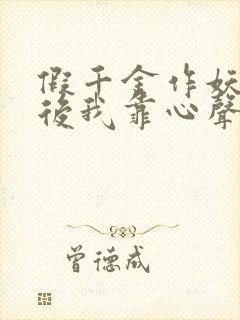 假千金作妖
後我靠心聲
曾德成